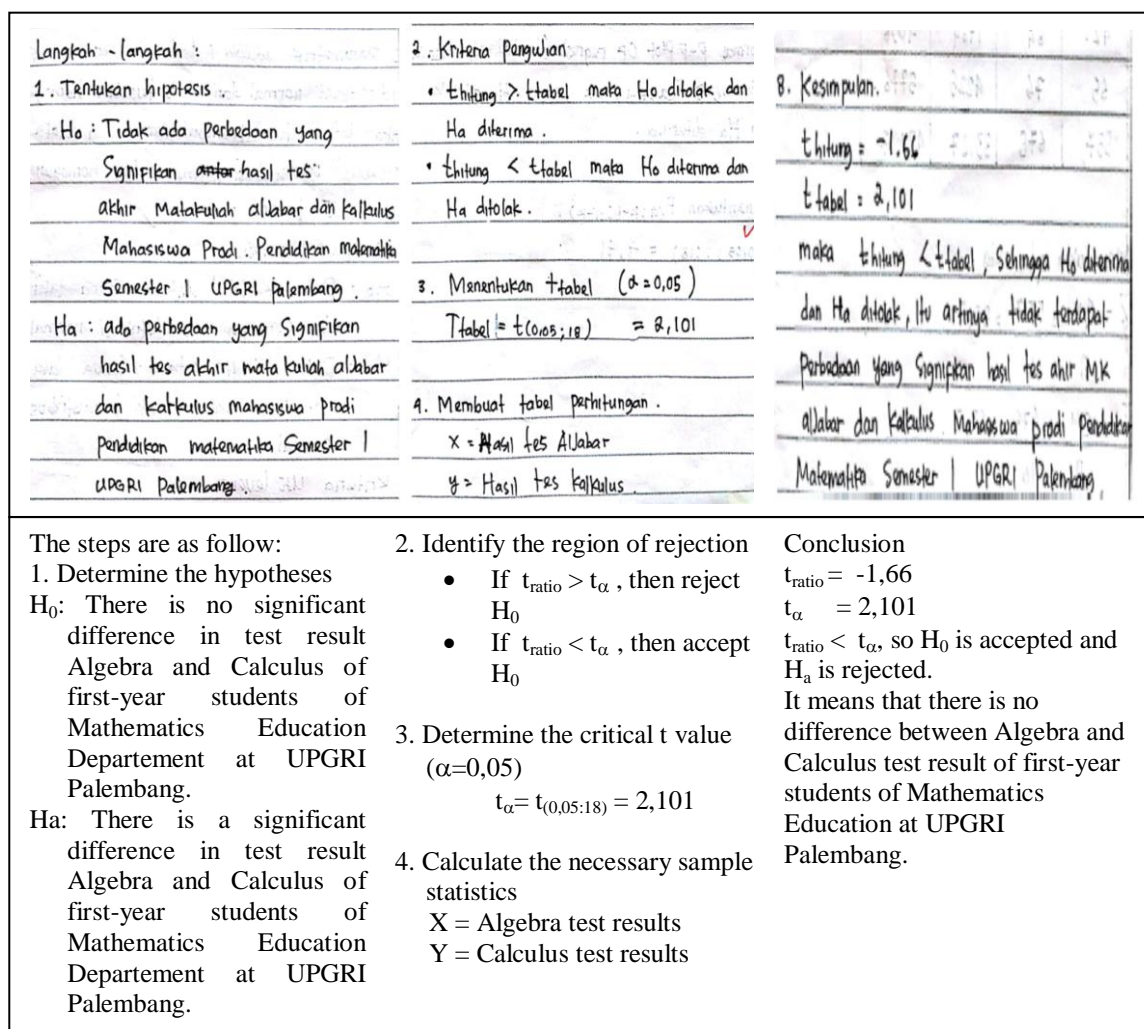 Langkah - langkah :
1. Tentukan hipotesis
Ho : Tidak ada perbedaan yang
Signifikan antar hasil tes
akhir Matakuliah aljabar dan kalkulus
Mahasiswa Prodi. Pendidikan matematika
Semester 1 UPGRI Palembang.
Ha : ada perbedaan yang Signifikan
hasil tes akhir mata kuliah aljabar
dan kalkulus mahasiswa prodi
pendidikan matematika Semester 1
UPGRI Palembang.
2. Kriteria Pengujian
• thitung > ttabel maka Ho ditolak dan
Ha diterima.
• thitung < ttabel maka Ho diterima dan
Ha ditolak.
3. Menentukan ttabel (α = 0,05)
Ttabel = t(0,05; 18) = 2,101
4. Membuat tabel perhitungan.
x = Hasil tes Aljabar
y = Hasil tes kalkulus.
8. Kesimpulan.
thitung = -1.66
ttabel = 2,101
maka thitung < ttabel, Sehingga Ho diterima
dan Ha ditolak, Itu artinya tidak terdapat
Perbedaan yang Signifikan hasil tes ahir MK
aljabar dan kalkulus Mahasiswa prodi pendidikan
Matematika Semester 1 UPGRI Palembang
The steps are as follow:
1. Determine the hypotheses
H₀: There is no significant
difference in test result
Algebra and Calculus of
first-year students of
Mathematics Education
Departement at UPGRI
Palembang.
Ha: There is a significant
difference in test result
Algebra and Calculus of
first-year students of
Mathematics Education
Departement at UPGRI
Palembang.
2. Identify the region of rejection
• If t_ratio > t_α , then reject
H₀
• If t_ratio < t_α , then accept
H₀
3. Determine the critical t value
(α=0,05)
t_α= t_(0,05:18) = 2,101
4. Calculate the necessary sample
statistics
X = Algebra test results
Y = Calculus test results
Conclusion
t_ratio = -1,66
t_α = 2,101
t_ratio < t_α, so H₀ is accepted and
H_a is rejected.
It means that there is no
difference between Algebra and
Calculus test result of first-year
students of Mathematics
Education at UPGRI
Palembang.